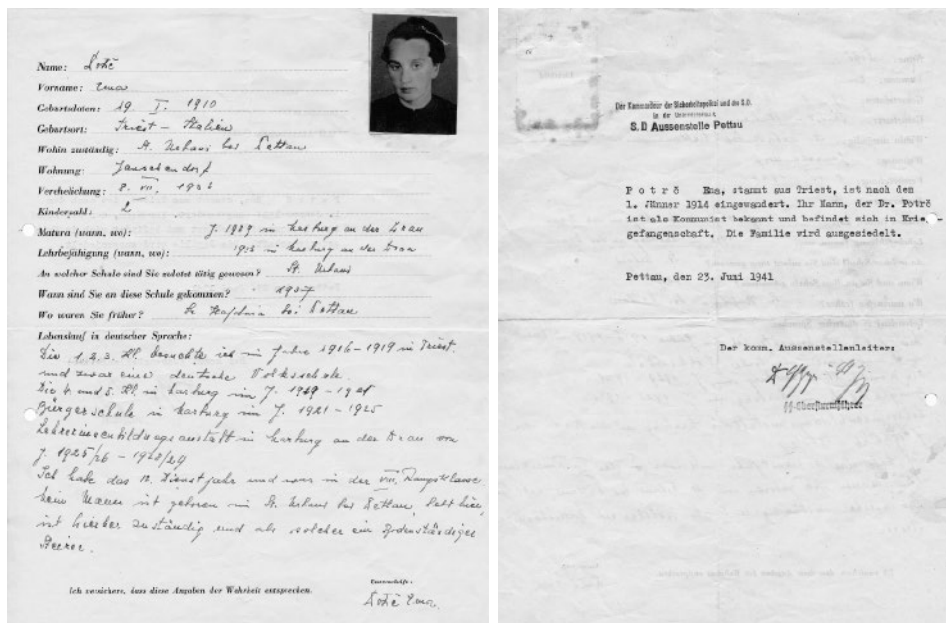 Name: Potrč
Vorname: Ema
Geburtsdaten: 19. I. 1910
Geburtsort: Triest – Italien
Wohin zuständig: St. Urbani bei Pettau
Wohnung: Janschendorf
Verehelichung: 8. VII. 1933
Kinderzahl: 2
Matura (wann, wo): J. 1929 in Marburg an der Drau
Lehrbefähigung (wann, wo): in Marburg an der Drau
An welcher Schule sind Sie zuletzt tätig gewesen? St. Urbani
Wann sind Sie an diese Schule gekommen? 1937
Wo waren Sie früher? bei Pettau
Lebenslauf in deutscher Sprache:
Die 1. 2. 3. Kl. besuchte ich im Jahre 1916–1919 in Triest.
und zwar eine deutsche Volksschule.
Die 4. und 5. Kl. in Marburg im J. 1919 – 1921
Bürgerschule in Marburg im J. 1921 – 1925
Lehrerinnenbildungsanstalt in Marburg an der Drau von
J. 1925/26 – 1928/29
Ich habe das 10. Dienstjahr und war in der VIII. Rangsklasse
Mein Mann ist geboren in St. Urbani bei Pettau, lebt hier,
ist hieher zuständig und als solcher ein Bodenständiger
Steirer.
Ich versichere, dass diese Angaben der Wahrheit entsprechen.
Unterschrift:
Potrč Ema.
Der Kommandeur der Sicherheitspolizei und des S.D.
in der Untersteiermark
S.D Aussenstelle Pettau
Potrč Ema, stammt aus Triest, ist nach den
1. Jänner 1914 eingewandert. Ihr Mann, der Dr. Potrč
ist als Kommunist bekannt und befindet sich in Krie
gefangenschaft. Die Familie wird ausgesiedelt.
Pettau, den 23. Juni 1941
Der komm. Aussenstellenleiter:
SS-Obersturmführer